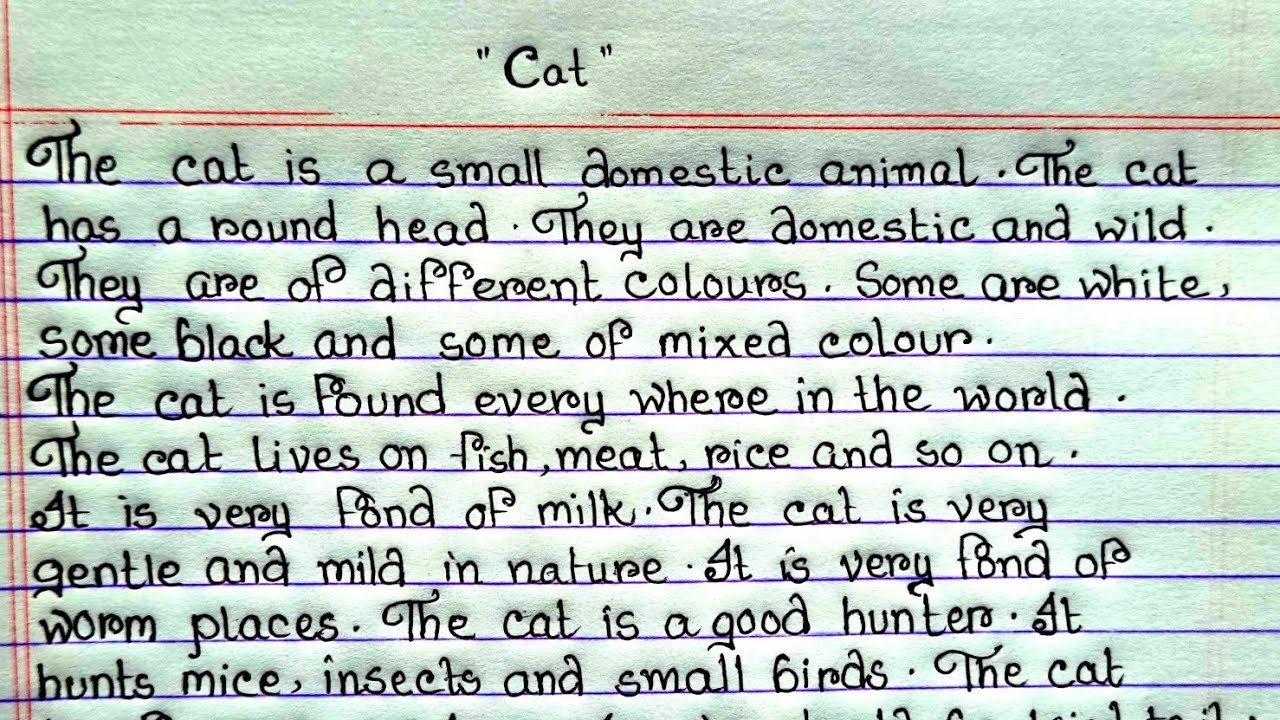 "Cat"
The cat is a small domestic animal. The cat
has a round head. They are domestic and wild.
They are of different colours. Some are white,
some black and some of mixed colour.
The cat is found every where in the world.
The cat lives on fish, meat, rice and so on.
It is very fond of milk. The cat is very
gentle and mild in nature. It is very fond of
worm places. The cat is a good hunter. It
hunts mice, insects and small birds. The cat